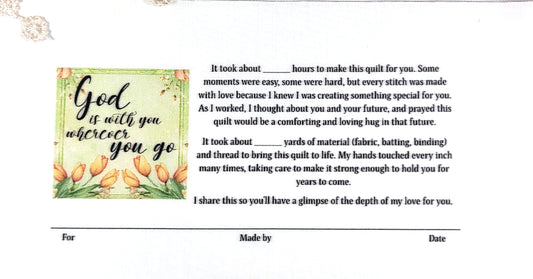 God
is with you
wherever
you go
It took about ______ hours to make this quilt for you. Some
moments were easy, some were hard, but every stitch was made
with love because I knew I was creating something special for you.
As I worked, I thought about you and your future, and prayed this
quilt would be a comforting and loving hug in that future.
It took about ______ yards of material (fabric, batting, binding)
and thread to bring this quilt to life. My hands touched every inch
many times, taking care to make it strong enough to hold you for
years to come.
I share this so you'll have a glimpse of the depth of my love for you.
For Made by Date